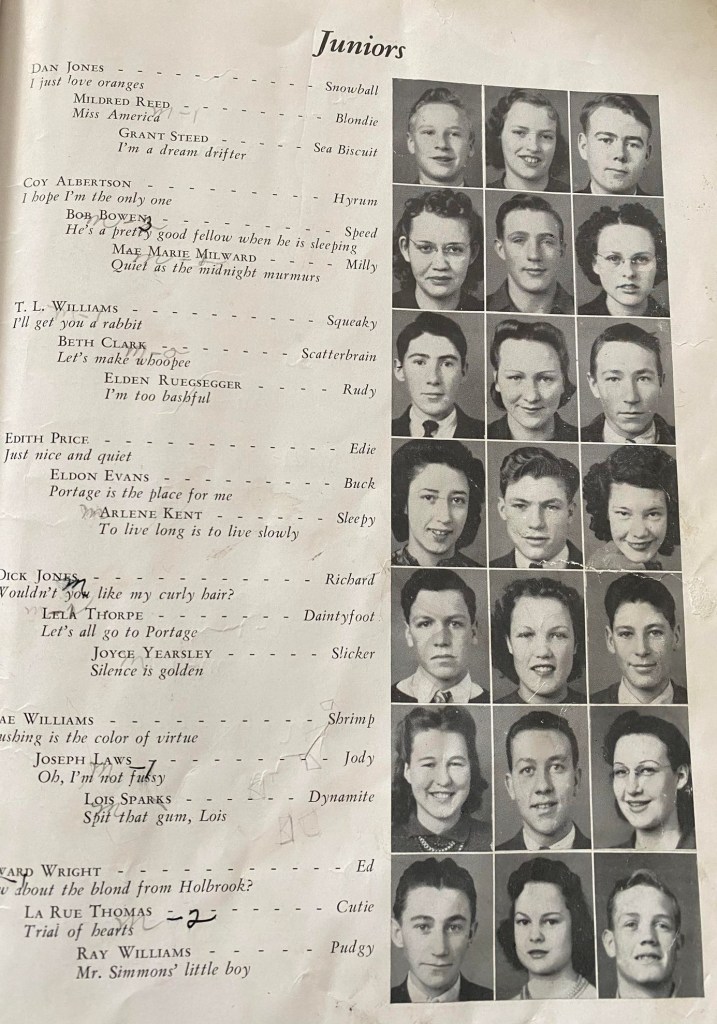 Juniors
DAN JONES - - - - - - - - - - - Snowball
I just love oranges
MILDRED REED - - - - - - - - Blondie
Miss America m-1
GRANT STEED - - - - - Sea Biscuit
I'm a dream drifter
COY ALBERTSON - - - - - - - - - - Hyrum
I hope I'm the only one
BOB BOWEN - - - - - - - - - - Speed
3
He's a pretty good fellow when he is sleeping
MAE MARIE MILWARD - - - - Milly
Quiet as the midnight murmurs
T. L. WILLIAMS - - - - - - - - - - Squeaky
I'll get you a rabbit
BETH CLARK - - - - - - - - Scatterbrain
Let's make whoopee
ELDEN RUEGSEGGER - - - - Rudy
I'm too bashful
EDITH PRICE - - - - - - - - - - - Edie
Just nice and quiet
ELDON EVANS - - - - - - - - Buck
Portage is the place for me
m ARLENE KENT - - - - - - Sleepy
To live long is to live slowly
DICK JONES - - - - - - - - - - - Richard
m
Wouldn't you like my curly hair?
LELA THORPE - - - - - - - Daintyfoot
Let's all go to Portage
JOYCE YEARSLEY - - - - - Slicker
Silence is golden
AE WILLIAMS - - - - - - - - - - Shrimp
ushing is the color of virtue
JOSEPH LAWS -1 - - - - - - - - Jody
Oh, I'm not fussy
LOIS SPARKS - - - - - - Dynamite
Spit that gum, Lois
WARD WRIGHT - - - - - - - - - - Ed
w about the blond from Holbrook?
LA RUE THOMAS -2 - - - - - - Cutie
Trial of hearts m
RAY WILLIAMS - - - - - - Pudgy
Mr. Simmons' little boy